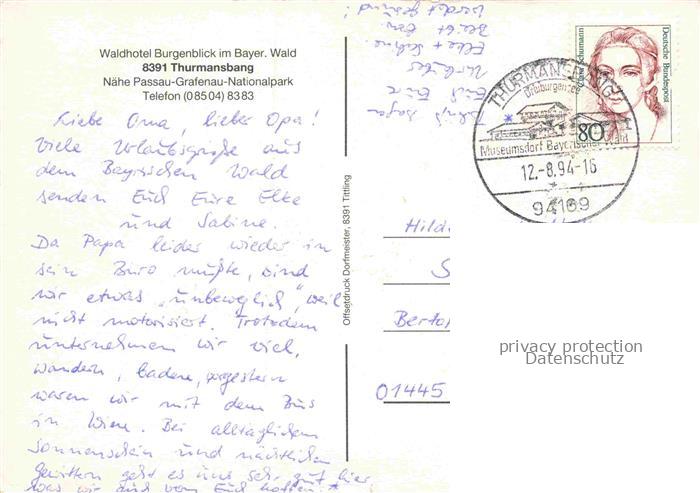 Waldhotel Burgenblick im Bayer. Wald
8391 Thurmansbang
Nähe Passau-Grafenau-Nationalpark
Telefon (08504) 8383
Liebe Oma, lieber Opa!
Viele Urlaubsgrüße aus
dem Bayrischen Wald
senden Euch Eure Elke
und Sabine.
Da Papa leider wieder in
sein Büro mußte, sind
wir etwas „unbeweglich", weil
nicht motorisiert. Trotzdem
unternehmen wir viel,
wandern, baden, vorgestern
waren wir mit dem Bus
in Wien. Bei alltäglichem
Sonnenschein und nächtlichen
Gewittern geht es uns sehr gut hier,
was wir auch von Euch hoffen! *
* Tschüß sagen
Euch Eure
Urlauber
Elke + Sabine.
Bleibt bzw.
werdet gesund!
Offsetdruck Dorfmeister, 8391 Tittling
Clara Schumann
Deutsche Bundespost
80
THURMANSBANG 1
Dreiburgensee
Museumsdorf Bayerischer Wald
12.-8.94-16
94169
Hild
S
Berto
01445
privacy protection
Datenschutz